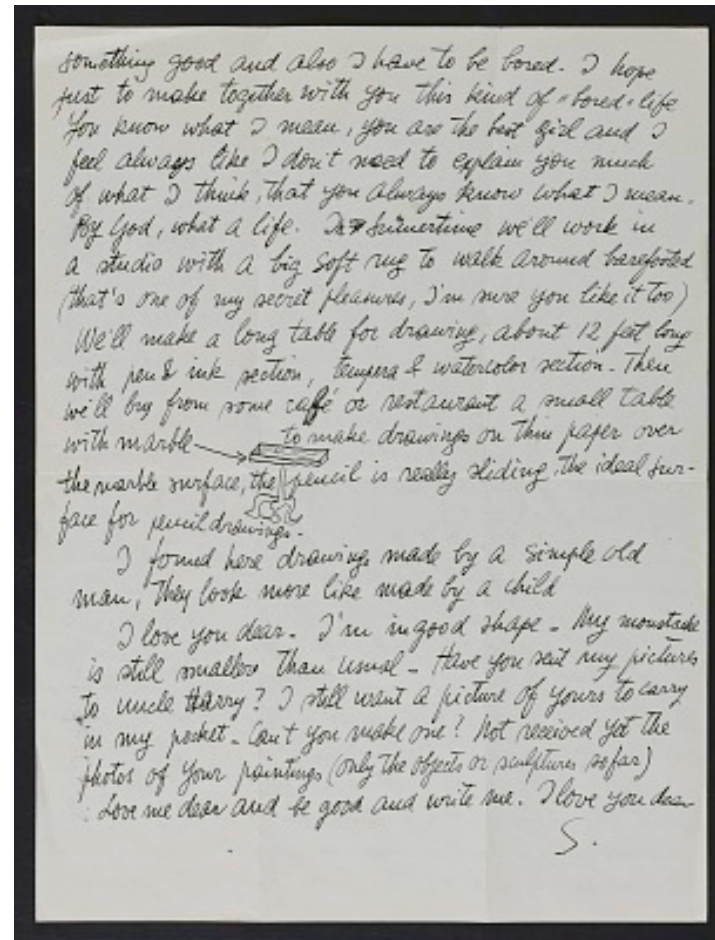 something good and also I have to be bored. I hope
just to make together with you this kind of "bored" life
You know what I mean, you are the best girl and I
feel always like I don't need to explain you much
of what I think, that you always know what I mean.
By God, what a life. In Summertime we'll work in
a studio with a big soft rug to walk around barefooted
(that's one of my secret pleasures, I'm sure you like it too)
We'll make a long table for drawing, about 12 feet long
with pen & ink section, tempera & watercolor section. Then
we'll buy from some café or restaurant a small table
with marble to make drawings on thin paper over
the marble surface, the pencil is really sliding, the ideal sur-
face for pencil drawings.
I found here drawings made by a simple old
man, They look more like made by a child
I love you dear. I'm in good shape - My moustache
is still smaller than usual - Have you sent my pictures
to uncle Harry? I still want a picture of yours to carry
in my pocket - Can't you make one? Not received yet the
photos of your paintings (only the objects or sculptures so far)
Love me dear and be good and write me. I love you dear
S.